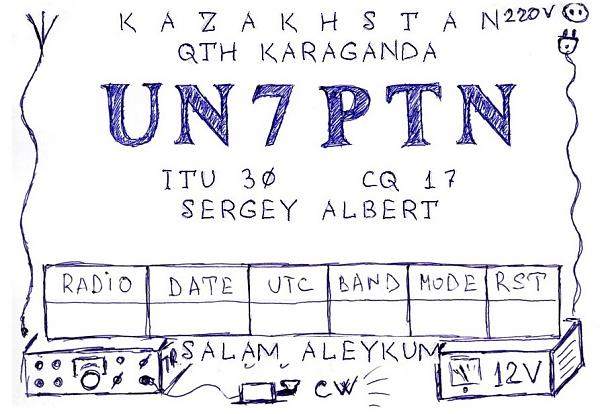 KAZAKHSTAN 220V
QTH KARAGANDA
UN7PTN
ITU 3Ø CQ 17
SERGEY ALBERT
RADIO DATE UTC BAND MODE RST
TR SALAM ALEYKUM
CW 12V